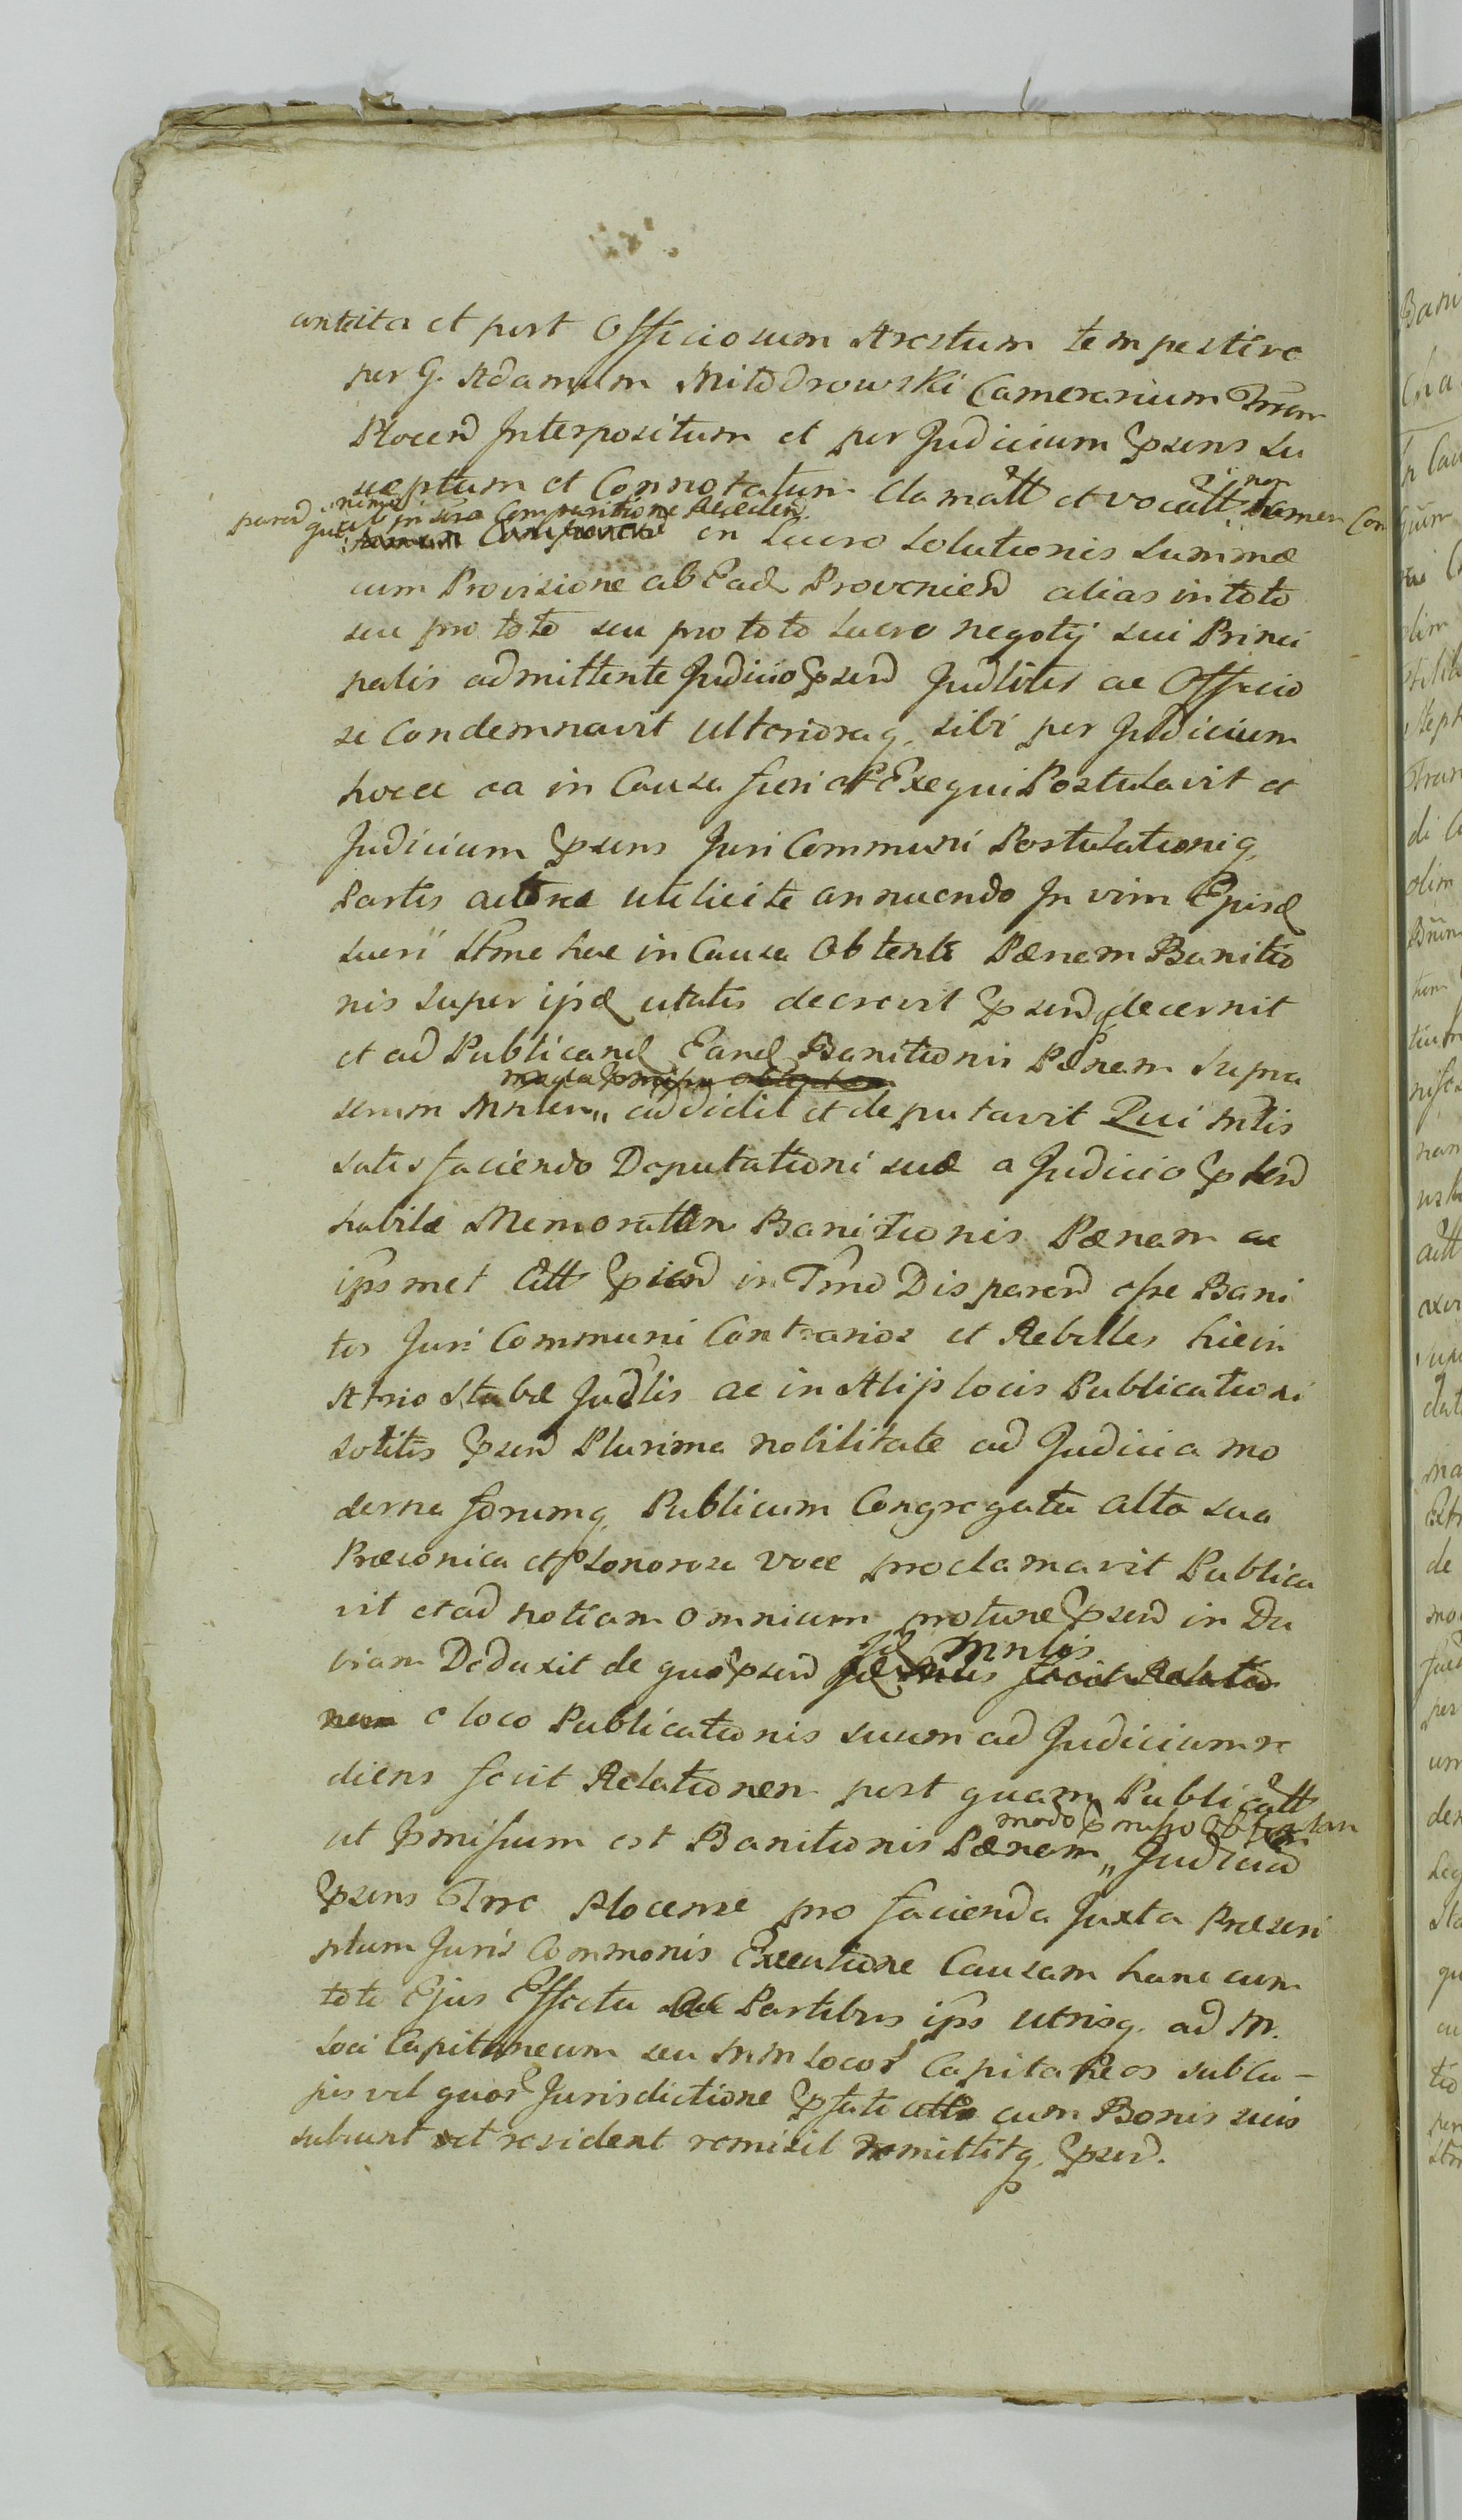 contcita et post Officiosum Arestum tempestive
per G. Adamum Milodrowski Camerarium Trrem
Plocen Interpositum et per Judicium Pnsens su
sceptum et Connotatum clamatt et vocatt non tamen Com
paren nimi
quid in sera Comparitione Acceden
in Lucro Solutionis Summæ
cum Provisione ab Ead Provenien alias in toto
seu pro toto seu pro toto Lucro negotij sui Princi
palis admittente Judicio Psen Judlites ac Officio
se Condemnavit Ulterioraq. sibi per Judicium
hocce ea in Causa fieri et Exequi Postulavit et
Judicium Psens Juri Communi Postulationiq.
Partis actoreæ uti licite annuendo In vim Epis
Lucri Stme hac in Causa Obtenti Pænam Banitio
nis super ips citatis decrevit Psen decernit
et ad Publicand Eand Banitionis Pænam supra
serum Mnlem addidit et deputavit Qui Mnlis
satisfaciendo Deputationi suæ a Judicio Psen
habitæ Memoratam Banitionis Pænam ac
ipsmet Citt Psen in Tmno Disparen esse Bani
tos Juri Communi Contrarios et Rebelles hic in
Atrio Stubæ Judlis ac in Alijs locis Publicationi
solitis Psen Plurima nobilitate ad Judicia mo
derna forumq. Publicum Congregata alta sua
Præconica et Sonorosa voce proclamavit Publica
vit et ad notiam omnium protunc Psen in Du
biam Deduxit de quo Psen Id Mnlis fecit Relatio
nem e loco Publicationis suum ad Judicium re
diens fecit Relationem post quam Publicatt
ut Pmissum est Banitionis Pænam modo Pmisso Judiciu
Psens Trre Plocense pro facienda Juxta Præscri
ptum Juris Commonis Executione Causam hanc cum
toto Ejus Effectu Ac Partibus ips utrisq. ad M.
Loci Capitaneum seu MM locor Capitaneos sub cu-
jus vel quor Jurisdictione Pfati citti cum Bonis suis
subsunt et resident remisit remittitq. Psen.